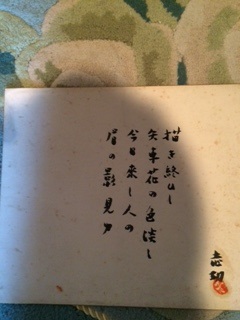 描き終へし
矢車花の色淡し
今日来し人の
眉の影見ゆ